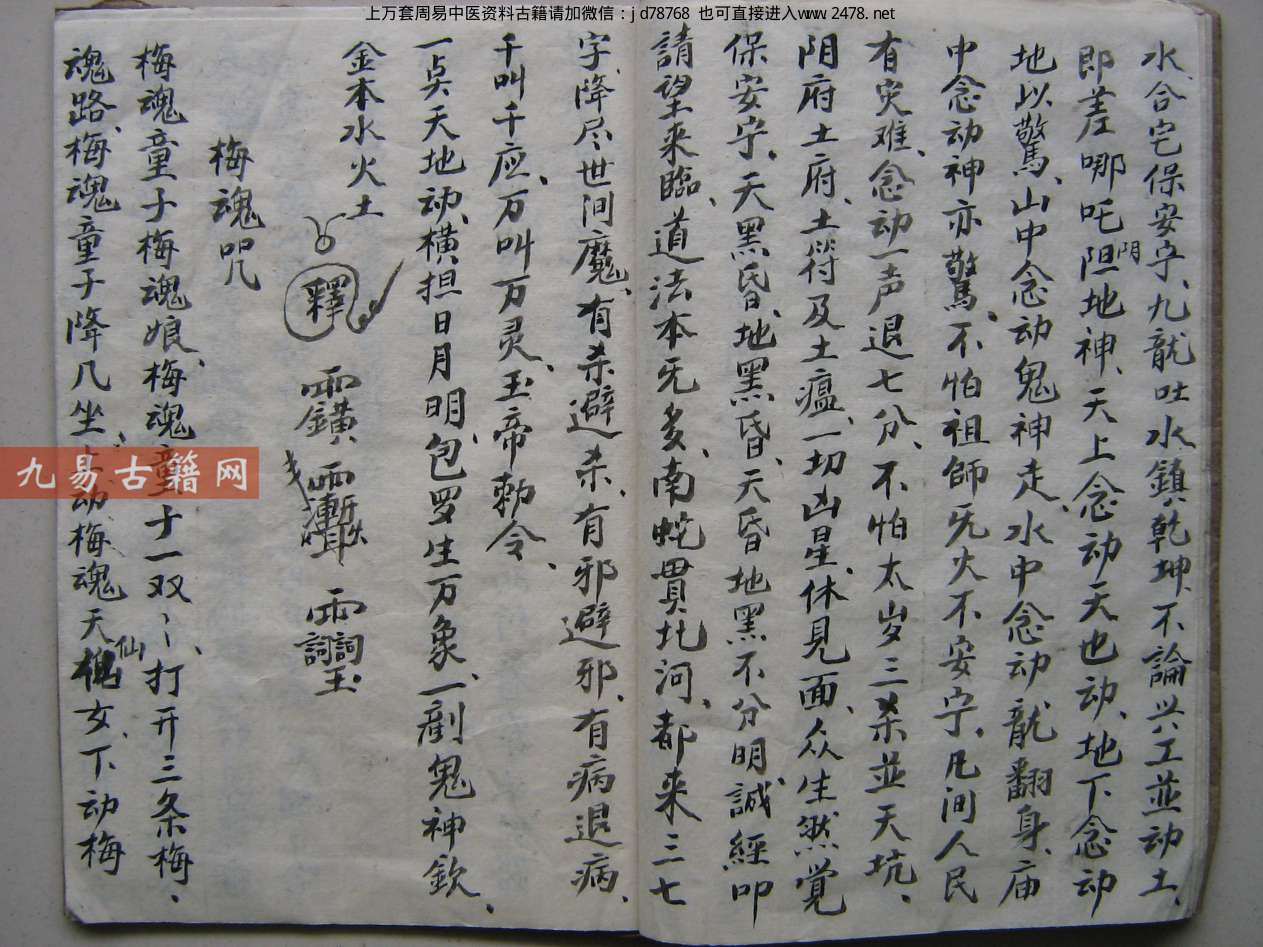 上万套周易中医资料古籍请加微信：jd78768 也可直接进入www.2478.net
水合宅保安宁、九龍吐水鎮乾坤、不論兴工並动土、
即差哪吒阻门地神、天上念动天也动、地下念动
地以驚、山中念动鬼神走、水中念动龍翻身、庙
中念动神亦驚、不怕祖師旡火不安宁、凡间人民
有灾难、念动一声退七分、不怕太岁三杀並天坑、
阴府土府、土符及土瘟、一切凶星、休見面、众生然覚
保安宁、天黑昏、地黑昏、天昏地黑不分明、誠經叩
請望来臨、道法本旡多、南蛇貫北河、都来三七
字、降尽世间魔、有杀避杀、有邪避邪、有病退病、
千叫千应、万叫万灵、玉帝勅令、
一点天地动、横担日月明、包罗生万象、一劃鬼神欽、
金本水火土
釋
梅魂咒
梅魂童子梅魂娘、梅魂童子一双〻、打开三条梅、
魂路、梅魂童子降几坐、动梅魂天仙女、下动梅
九易古籍网